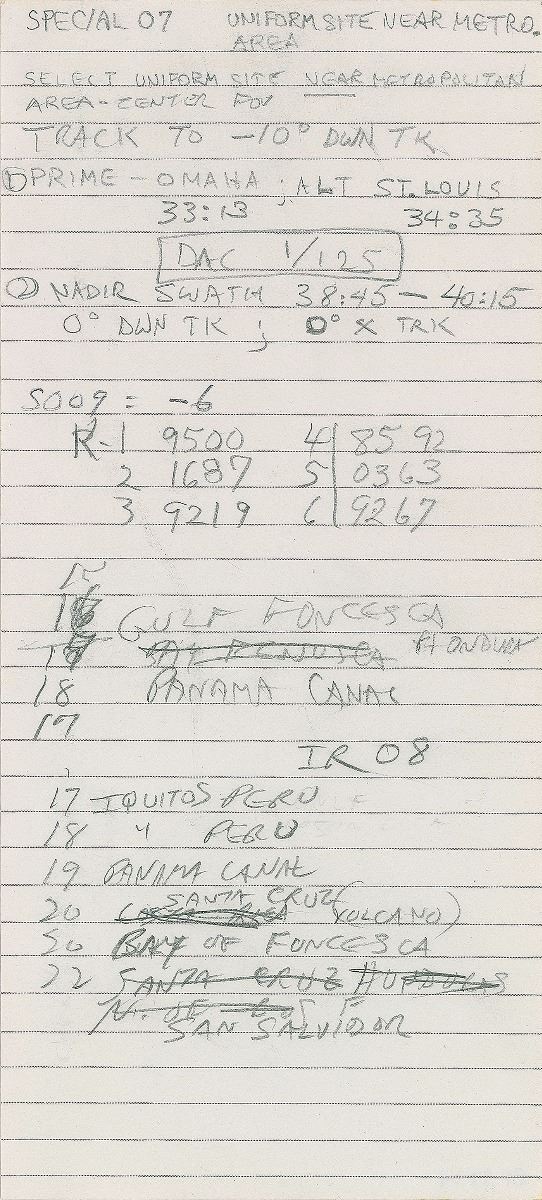 SPECIAL 07 UNIFORM SITE NEAR METRO.
AREA
SELECT UNIFORM SITE NEAR METROPOLITAN
AREA - CENTER FOV
TRACK TO -10° DWN TK
① PRIME - OMAHA ; ALT ST. LOUIS
33:13 34:35
DAC 1/125
② NADIR SWATH 38:45 - 40:15
0° DWN TK ; 0° X TRK
S009 = -6
R-1 9500 4 8592
2 1687 5 0363
3 9219 6 9267
15
16 GULF FONCESCA
HONDURA
18 PANAMA CANAL
17
IR 08
17 IQUITOS PERU
18 " PERU
19 PANAMA CANAL
SANTA CRUZ
20 (VOLCANO)
20 BAY OF FONCESCA
22 SANTA CRUZ
SAN SALVIDOR